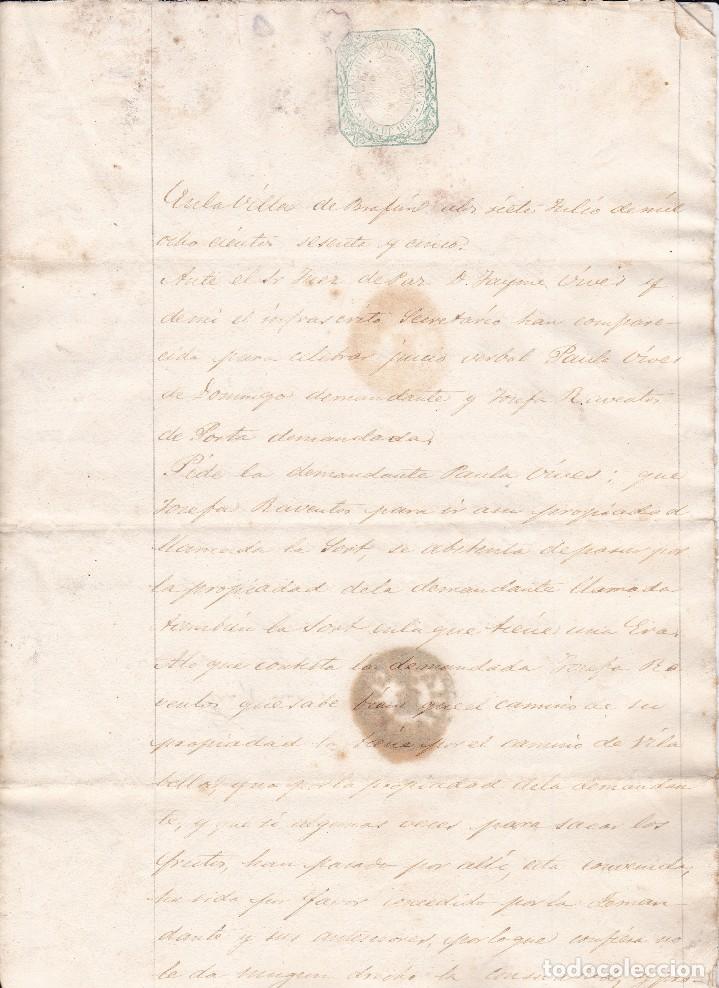 En la Villa de Brafim als siete Julio de mil
ocho cientos sesenta y cinco.
Ante el Sr Juez de Paz D. Jayme Vives y
demi el infrascrito Secretario han compare-
cido para celebrar juicio verbal Paula Vives
de Domingo demandante y Josefa Raventos
de Porta demandada.
Pide la demandante Paula Vives; que
Josefa Raventos para ir a su propiedad
llamada la Sort, se abstenta de pasar por
la propiedad dela demandante llamada
tambien la Sort enla que tiene una Era.
Alo que contesta la demandada Josefa Ra
ventos que sabe bien que el camino de su
propiedad la tiene por el camino de Vila
bella, y no por la propiedad dela demandan
te, y que si algunas veces para sacar los
frutos, han pasado por allí, esta convenida,
ha sido por favor concedido por la deman-
dante y sus antesores, por lo que confiesa no
le da ningun
todocoleccion
todocoleccion.net